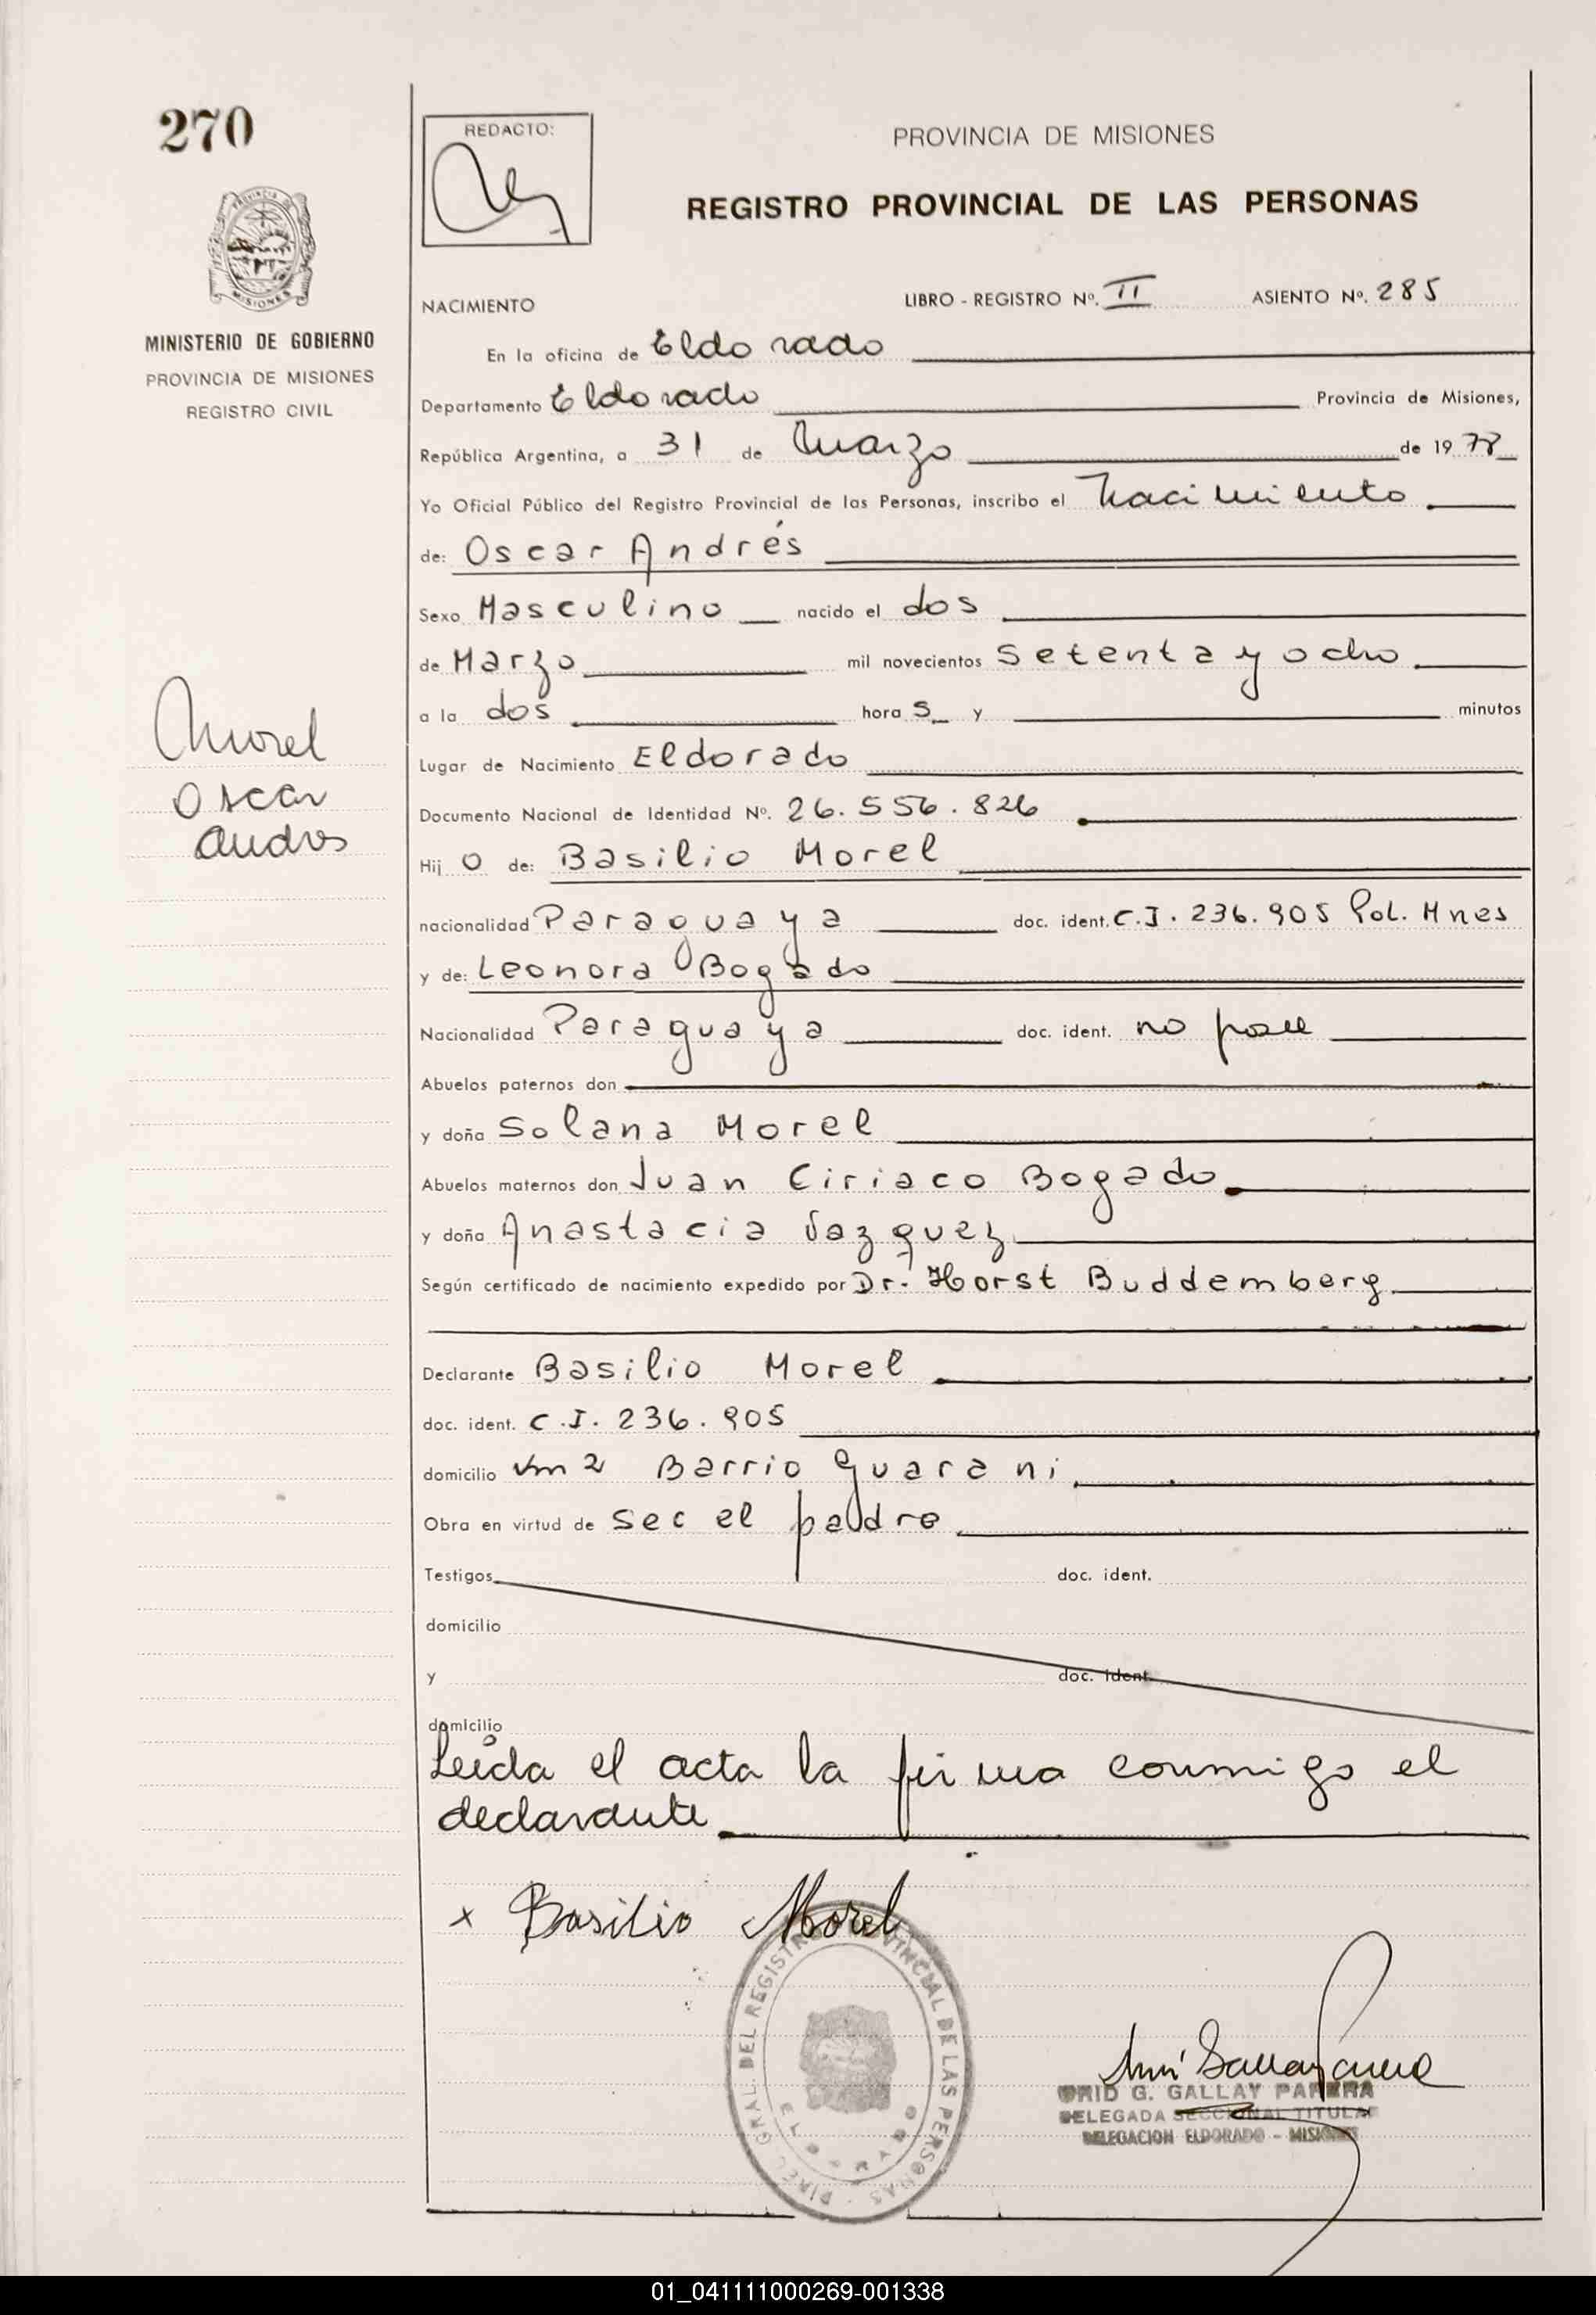 270
REDACTO:
PROVINCIA DE MISIONES
REGISTRO PROVINCIAL DE LAS PERSONAS
MISIONES
MINISTERIO DE GOBIERNO
PROVINCIA DE MISIONES
REGISTRO CIVIL
NACIMIENTO LIBRO - REGISTRO Nº. II ASIENTO Nº. 285
En la oficina de Eldorado
Departamento Eldorado Provincia de Misiones,
República Argentina, a 31 de Marzo de 19 78
Yo Oficial Público del Registro Provincial de las Personas, inscribo el Nacimiento
de: Oscar Andrés
Sexo Masculino nacido el dos
de Marzo mil novecientos Setenta y ocho
a la dos hora s y minutos
Lugar de Nacimiento Eldorado
Documento Nacional de Identidad Nº. 26.556.826
Hij o de: Basilio Morel
nacionalidad Paraguaya doc. ident. C.I. 236.905 Pol. Mnes
y de: Leonora Bogado
Nacionalidad Paraguaya doc. ident. no posee
Abuelos paternos don
y doña Solana Morel
Abuelos maternos don Juan Ciriaco Bogado
y doña Anastacia Vazquez
Según certificado de nacimiento expedido por Dr. Horst Buddemberg
Declarante Basilio Morel
doc. ident. C.I. 236.905
domicilio Km 2 Barrio Guarani
Obra en virtud de sec el padre
Testigos doc. ident.
domicilio
y doc. ident.
domicilio
Leída el acta la firma conmigo el
declarante
Morel
Oscar
Andres
x Basilio Morel
DIREC. GRAL. DEL REGISTRO PROVINCIAL DE LAS PERSONAS
ELDORADO
G. GALLAY PARERA
DELEGADA SECCIONAL TITULAR
DELEGACION ELDORADO - MISIONES
01_041111000269-001338